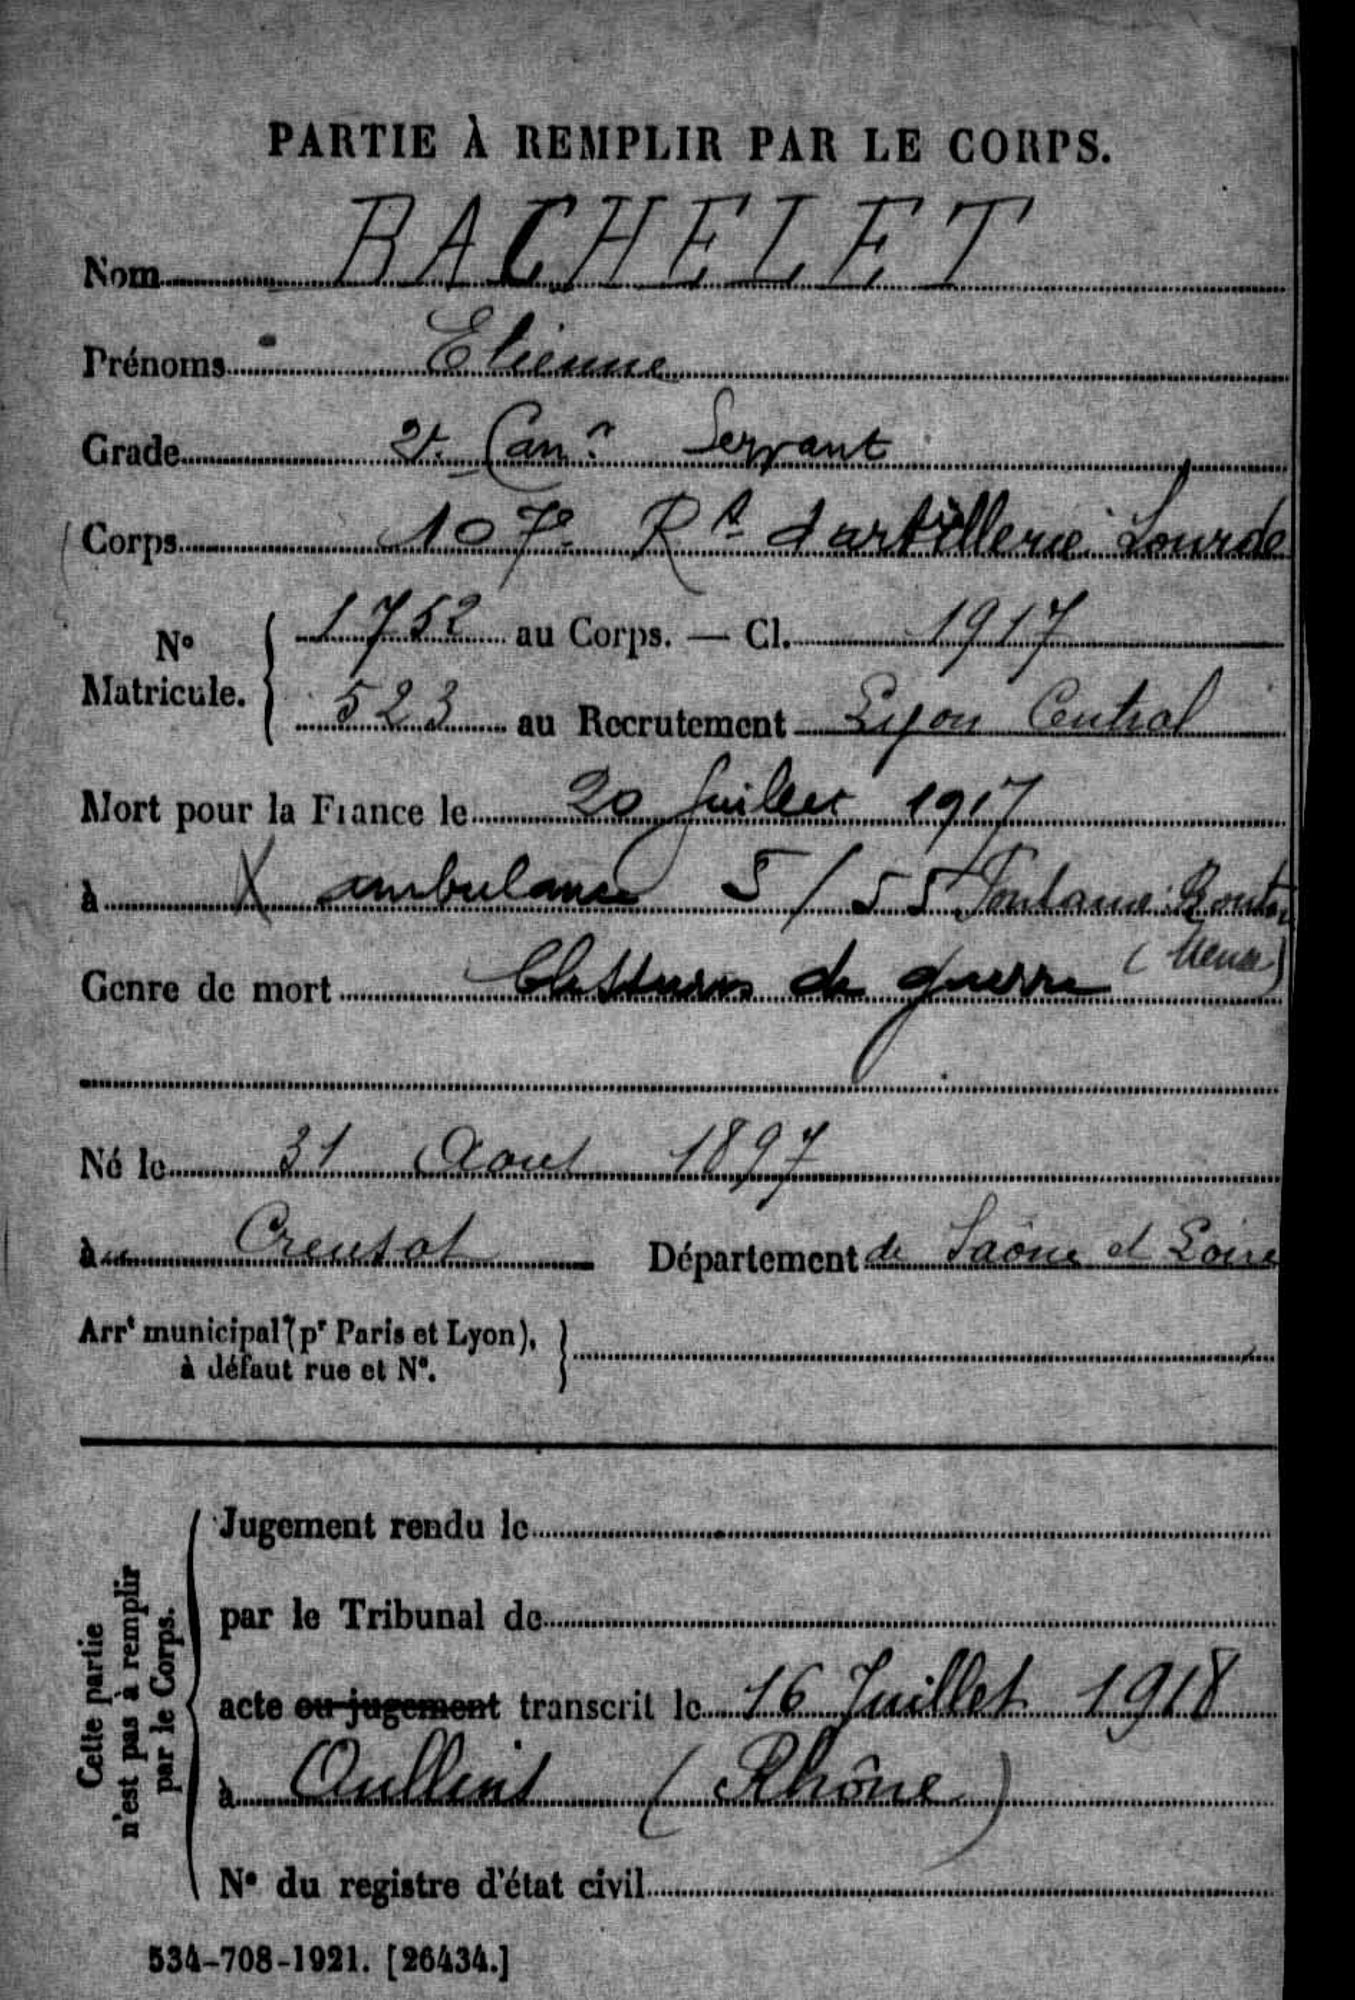 PARTIE À REMPLIR PAR LE CORPS.
Nom BACHELET
Prénoms Etienne
Grade 2e Canr Servant
Corps 107e Rt d'artillerie Lourde
No Matricule. 1752 au Corps. — Cl. 1917
523 au Recrutement Lyon Central
Mort pour la France le 20 Juillet 1917
à X ambulance 5/55 Fontaine Routon
(Meuse)
Genre de mort blessures de guerre
Né le 31 Août 1897
au Creusot Département de Saône et Loire
Arrt municipal (pr Paris et Lyon),
à défaut rue et No.
Cette partie
n'est pas à remplir
par le Corps.
Jugement rendu le
par le Tribunal de
acte ou jugement transcrit le 16 Juillet 1918
à Oullins (Rhône)
No du registre d'état civil
534-708-1921. [26434.]